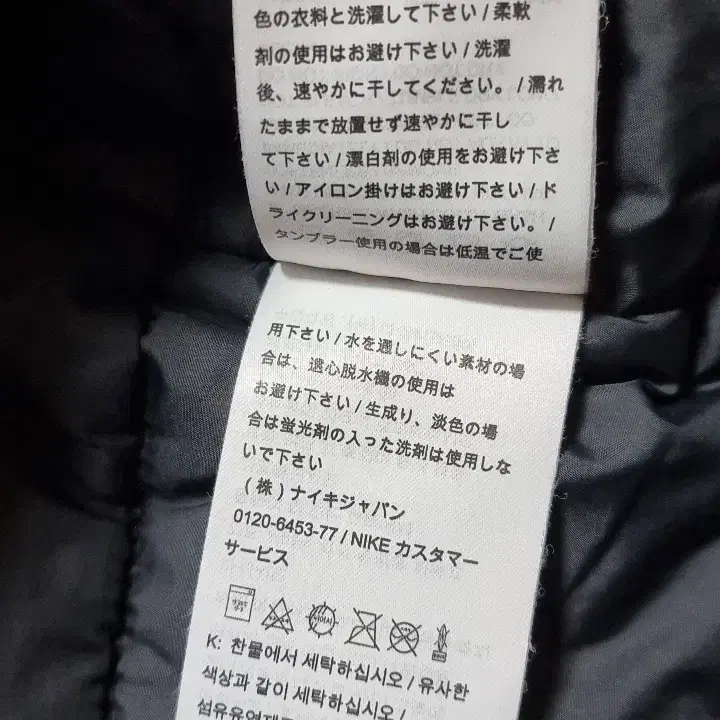 色の衣料と洗濯して下さい / 柔軟
剤の使用はお避け下さい / 洗濯
後、速やかに干してください。 / 濡れ
たままで放置せず速やかに干し
て下さい / 漂白剤の使用をお避け下さ
い / アイロン掛けはお避け下さい / ド
ライクリーニングはお避け下さい。 /
タンブラー使用の場合は低温でご使
用下さい / 水を通しにくい素材の場
合は、遠心脱水機の使用は
お避け下さい / 生成り、淡色の場
合は蛍光剤の入った洗剤は使用しな
いで下さい
(株) ナイキジャパン
0120-6453-77 / NIKE カスタマー
サービス
K: 찬물에서 세탁하십시오 / 유사한
색상과 같이 세탁하십시오 /
섬유유연제